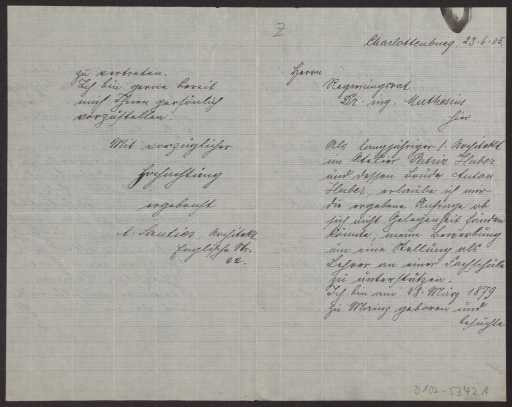 Z
zu vertreten.
Ich bin gerne bereit
mich Ihnen persönlich
vorzustellen.
Mit vorzüglicher
Hochachtung
ergebenst
A. Architekt
Englische Str.
22.
Charlottenburg, 23.6.05.
Herrn
Regierungsrat
Dr. ing. Muthesius
hier
Als langjähriger I. Architekt
im Atelier Patriz Huber
und dessen Bruder Anton
Huber, erlaube ich mir
die ergebene Anfrage ob
sich nicht Gelegenheit finden
könnte, meine Bewerbung
um eine Stellung als
Lehrer an einer Fachschule
zu unterstützen.
Ich bin am 19. März 1879
zu Mainz geboren und
besuchte
D102-5342 1